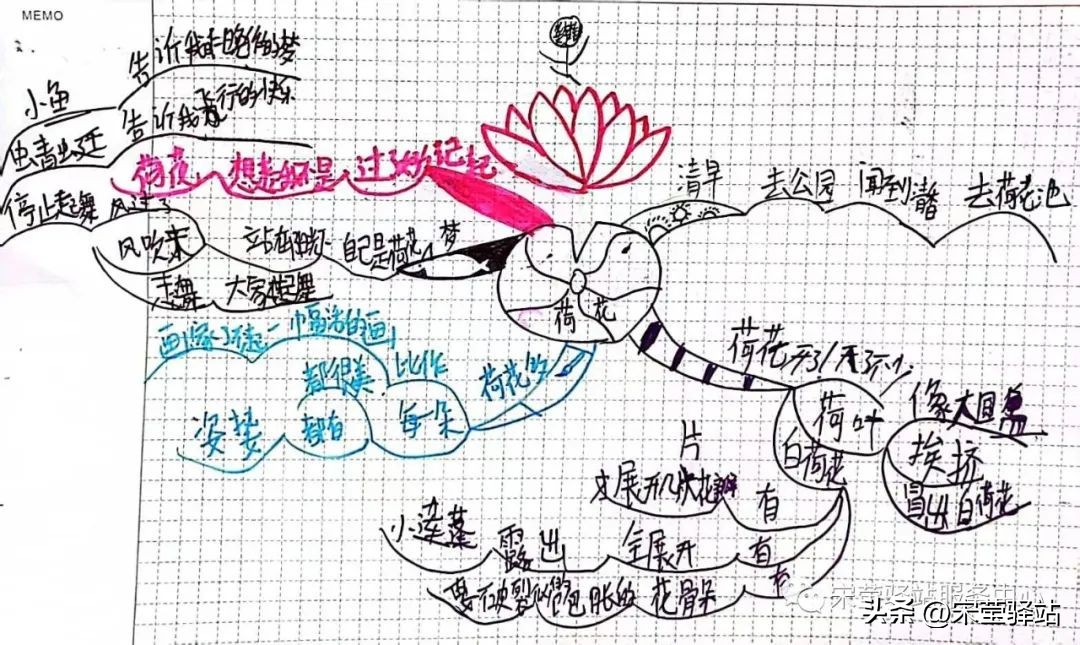 MEMO
2.
告诉我昨晚做的梦
小鱼
告诉我飞行的快乐
虫青虫廷
荷花 想起 不是 过了好 记起
停止起舞 风过了
风吹来 站在阳 自己是荷花 梦
走舞 大家
清早 去公园 闻到清香 去荷花池
荷花
画家了不起 一幅活的画
都很美 比作 荷花的
姿势 都有 每一朵
荷花开了/开了不少
荷叶 像大圆盘
挨挤
白荷花
冒出白荷花
片
才展开几块花瓣 有
小莲蓬 露出 全展开 有
要破裂似的 饱胀的 花骨朵
宋莹驿站服务中心
头条 @宋莹驿站